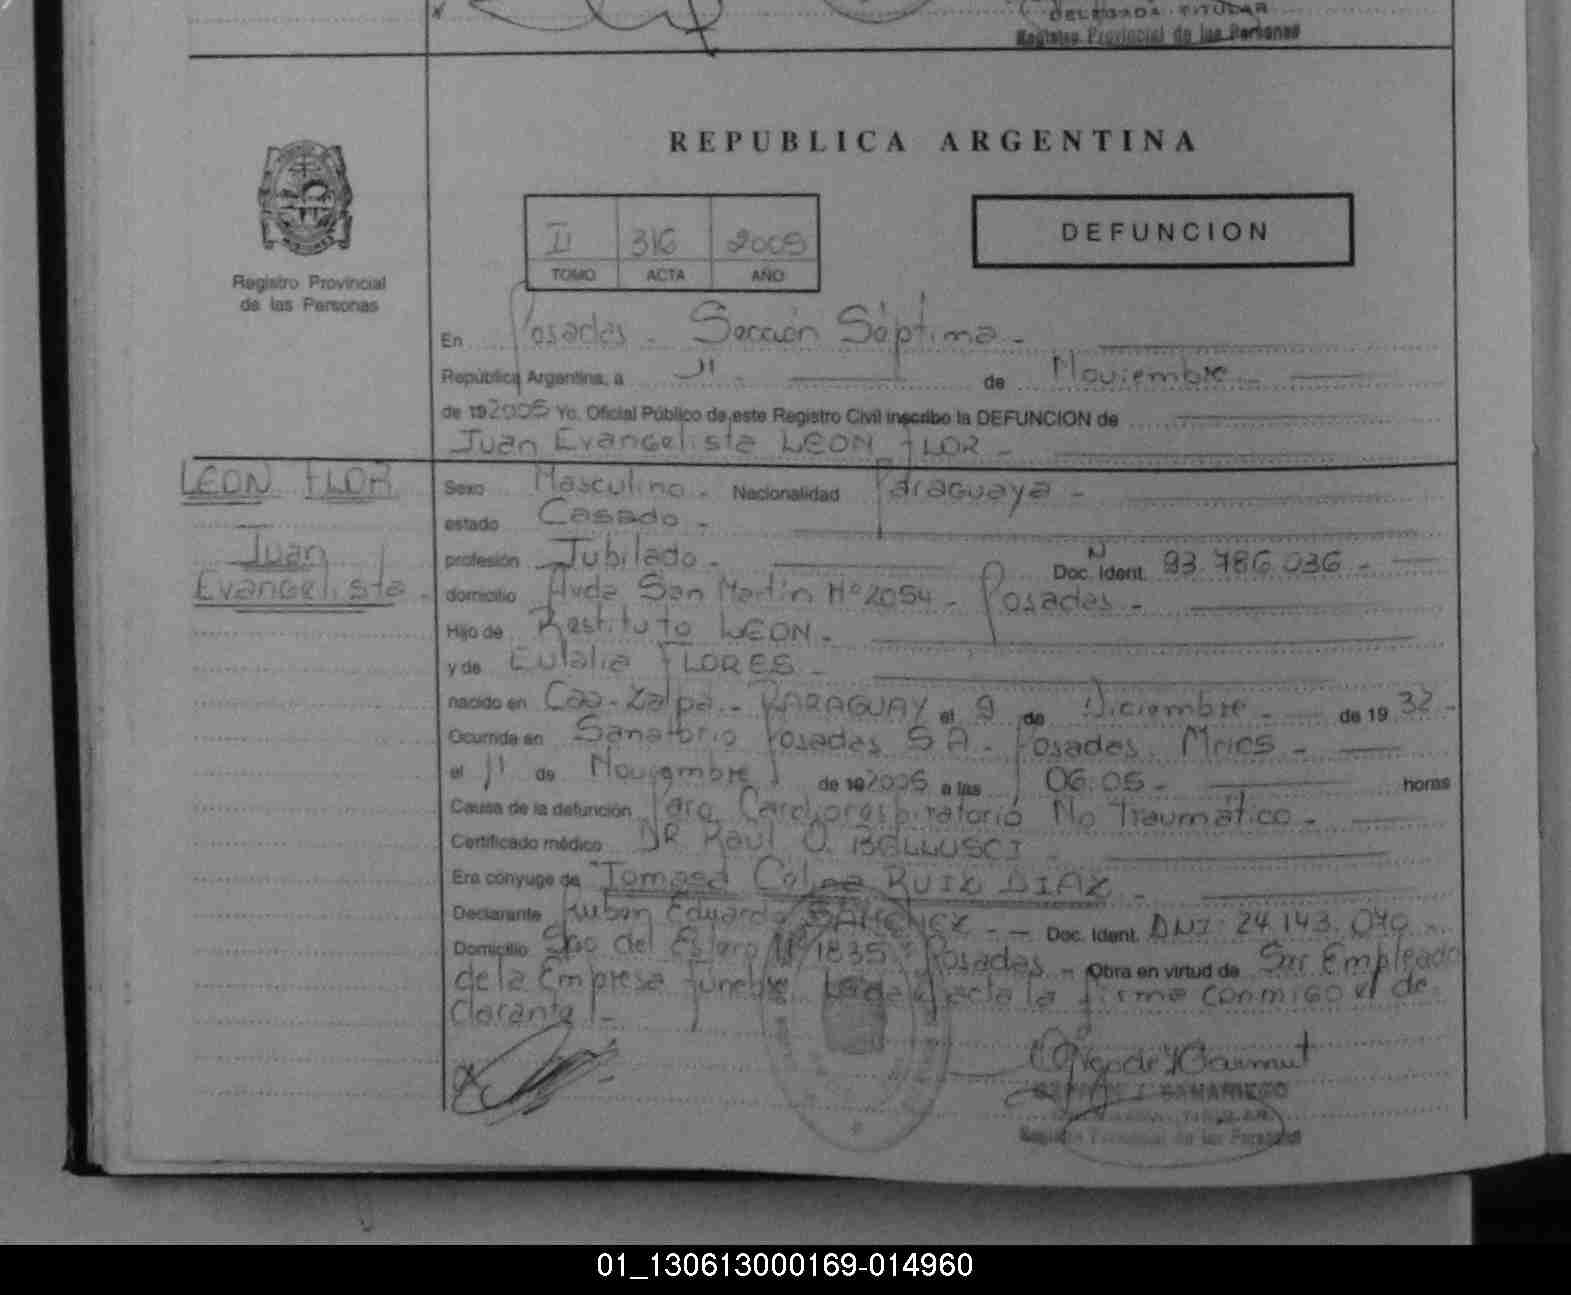 DELEGADA TITULAR
Registro Provincial de las Personas
REPUBLICA ARGENTINA
DEFUNCION
II 316 2005
TOMO ACTA AÑO
Registro Provincial
de las Personas
En Posadas - Sección Séptima -
República Argentina, a 11 - de Noviembre -
de 192005 Yo, Oficial Público de este Registro Civil inscribo la DEFUNCION de
Juan Evangelista LEON FLOR -
LEON FLOR
Juan
Evangelista -
Sexo Masculino - Nacionalidad Paraguaya -
estado Casado -
profesión Jubilado - Doc. Ident. N 93.786.036 -
domicilio Avda San Martín Nº 2054 - Posadas -
Hijo de Restituto LEON -
y de Eulalia FLORES -
nacido en Caa-Zalpa - PARAGUAY el 9 de Diciembre - de 19 32 -
Ocurrida en Sanatorio Posadas S A - Posadas, Mnes -
el 11 de Noviembre de 192005 a las 06.05 - horas
Causa de la defunción Paro Cardiorespiratorio No Traumático -
Certificado médico DR Raul O. BELLUSCI -
Era cónyuge de Tomasa Celsa RUIZ DIAZ -
Declarante Ruben Eduardo SANCHEZ - - Doc. Ident. DNI: 24.143.070 -
Domicilio Sgo del Estero Nº 1835 - Posadas - Obra en virtud de Ser Empleado
de la Empresa fúnebre. Leída el acta la firma conmigo el de-
clarante -
X
SAMANIEGO
Registro Provincial de las Personas
01_130613000169-014960